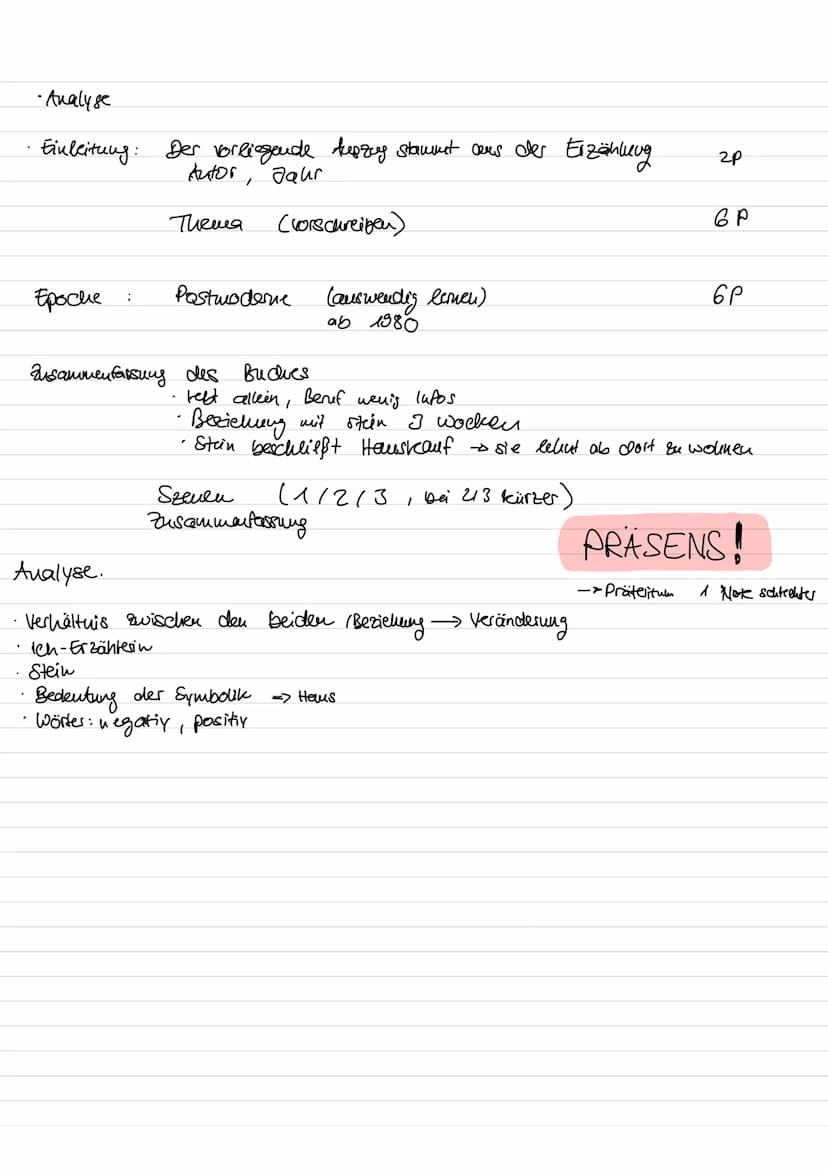 · Analyse
· Einleitung: Der vorliegende Auszug stammt aus der Erzählung 2P
Autor, Jahr
Thema (vorschreiben) 6P
Epoche : Postmoderne (auswendig lernen) 6P
ab 1980
Zusammenfassung des Buches
· lebt allein, Beruf wenig Infos
· Beziehung mit Stein 3 Wochen
· Stein beschließt Hauskauf → sie lehnt ab dort zu wohnen
Szenen (1/2/3, bei 2/3 kürzer)
Zusammenfassung
PRÄSENS!
Analyse.
→ Präteritum 1 Note schlechter
· Verhältnis zwischen den beiden / Beziehung → Veränderung
· Ich-Erzählerin
· Stein
· Bedeutung der Symbolik => Haus
· Wörter: negativ, positiv